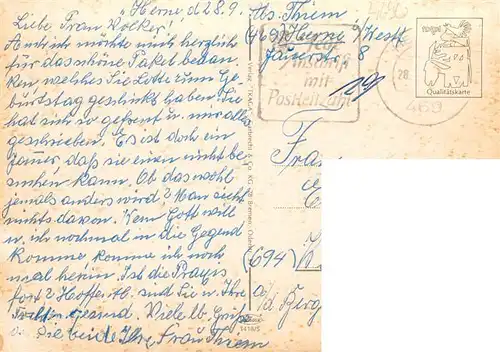 Herne, d 28.9.
Liebe Frau Volker!
Auch ich möchte mich herzlich
für das schöne Paket bedan-
ken welches Sie Lotte zum Ge-
burtstag geschickt haben. Sie
hat sich so gefreut u. mir alles
geschrieben. Es ist doch ein
Jammer daß sie einen nicht be-
suchen kann. Ob das wohl
jemals anders wird? Man sieht
nichts davon. Wenn Gott will
u. ich nochmal in die Gegend
komme komme ich noch
mal herein. Ist die Praxis
fort? Hoffentl. sind Sie u. Ihre
Tochter gesund. Viele lb. Grüße
die beide Ihre Frau Thiem
Abs. Thiem
(469) Herne i/Westf
8
mit
Postleitzahl
28.
469
Qualitätskarte
(694)
a/d. Berg